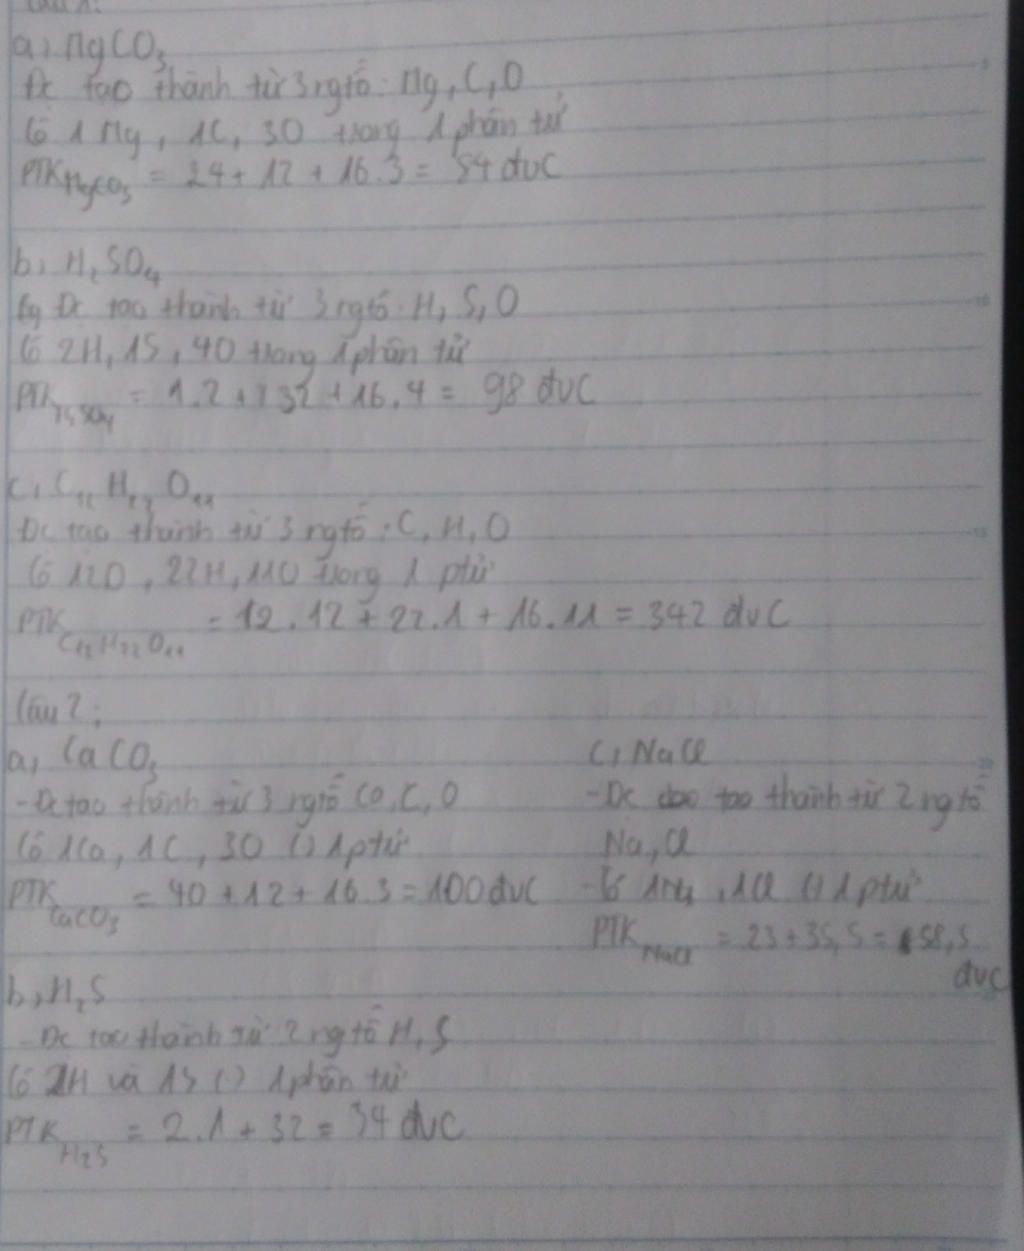 Câu 1:
a, MgCO3
Đc tạo thành từ 3 ngtố: Mg, C, O
Có 1 Mg, 1C, 3O trong 1 phân tử
PTK MgCO3 = 24 + 12 + 16.3 = 84 đvC
b, H2SO4
Đc tạo thành từ 3 ngtố: H, S, O
Có 2H, 1S, 4O trong 1 phân tử
PTK H2SO4 = 1.2 + 32 + 16.4 = 98 đvC
c, C12 H22 O11
Đc tạo thành từ 3 ngtố: C, H, O
Có 12O, 22H, 11O trong 1 ptử
PTK C12H22O11 = 12.12 + 22.1 + 16.11 = 342 đvC
Câu 2:
a, CaCO3
- Đc tạo thành từ 3 ngtố Ca, C, O
Có 1Ca, 1C, 3O () 1 ptử
PTK CaCO3 = 40 + 12 + 16.3 = 100 đvC
b, H2S
- Đc tạo thành từ 2 ngtố H, S
Có 2H và 1S () 1 phân tử
PTK H2S = 2.1 + 32 = 34 đvC
c, NaCl
- Đc tạo thành từ 2 ngtố
Na, Cl
- Có 1Na, 1Cl () 1 ptử
PTK NaCl = 23 + 35,5 = 58,5
đvC